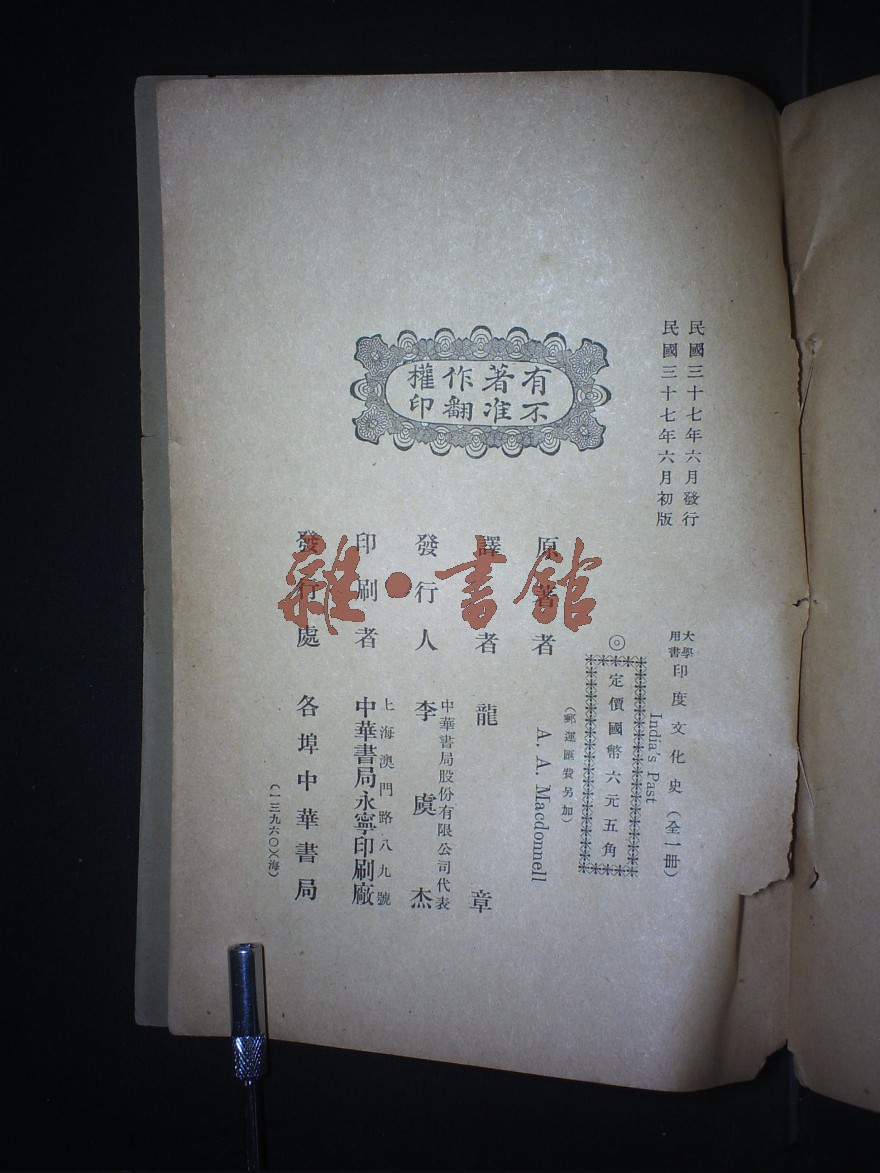 民國三十七年六月發行
民國三十七年六月初版
大學用書 印度文化史（全一册）
India's Past
◎定價國幣六元五角
（郵運匯費另加）
原著者 A. A. Macdonnell
譯者 龍章
發行人 李虞杰
中華書局股份有限公司代表
印刷者 中華書局永寧印刷廠
上海澳門路八九號
發行處 各埠中華書局
（一三九六〇）（海）
有著作權
不准翻印
雜·書館